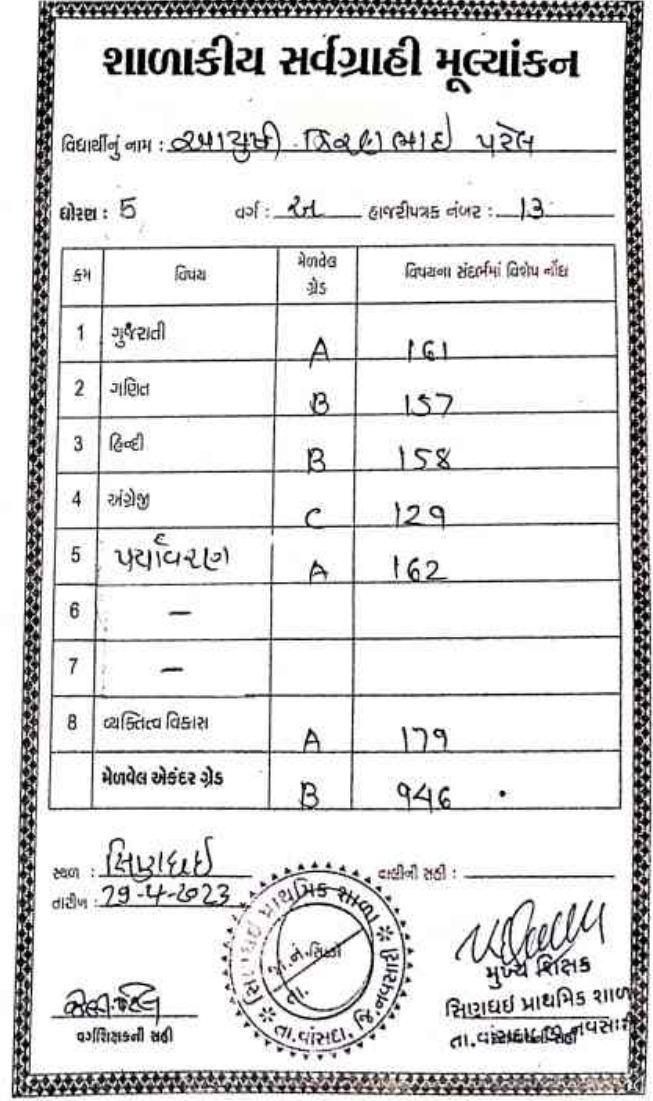 શાળાકીય સર્વગ્રાહી મૂલ્યાંકન
વિદ્યાર્થીનું નામ : આયુષી કિરણભાઇ પટેલ
ધોરણ : 5 વર્ગ : અ હાજરીપત્રક નંબર : 13
ક્રમ વિષય મેળવેલ ગ્રેડ વિષયના સંદર્ભમાં વિશેષ નોંધ
1 ગુજરાતી A 161
2 ગણિત B 157
3 હિન્દી B 158
4 અંગ્રેજી C 129
5 પર્યાવરણ A 162
6 –
7 –
8 વ્યક્તિત્વ વિકાસ A 179
મેળવેલ એકંદર ગ્રેડ B 946
સ્થળ : સિણધઇ
વાલીની સહી :
તારીખ : 29-4-2023
સિણધઇ પ્રાથમિક શાળા
તા.વાંસદા, જિ.નવસારી
મુખ્ય શિક્ષક
સિણધઇ પ્રાથમિક શાળા
તા.વાંસદા જિ.નવસારી
વર્ગશિક્ષકની સહી